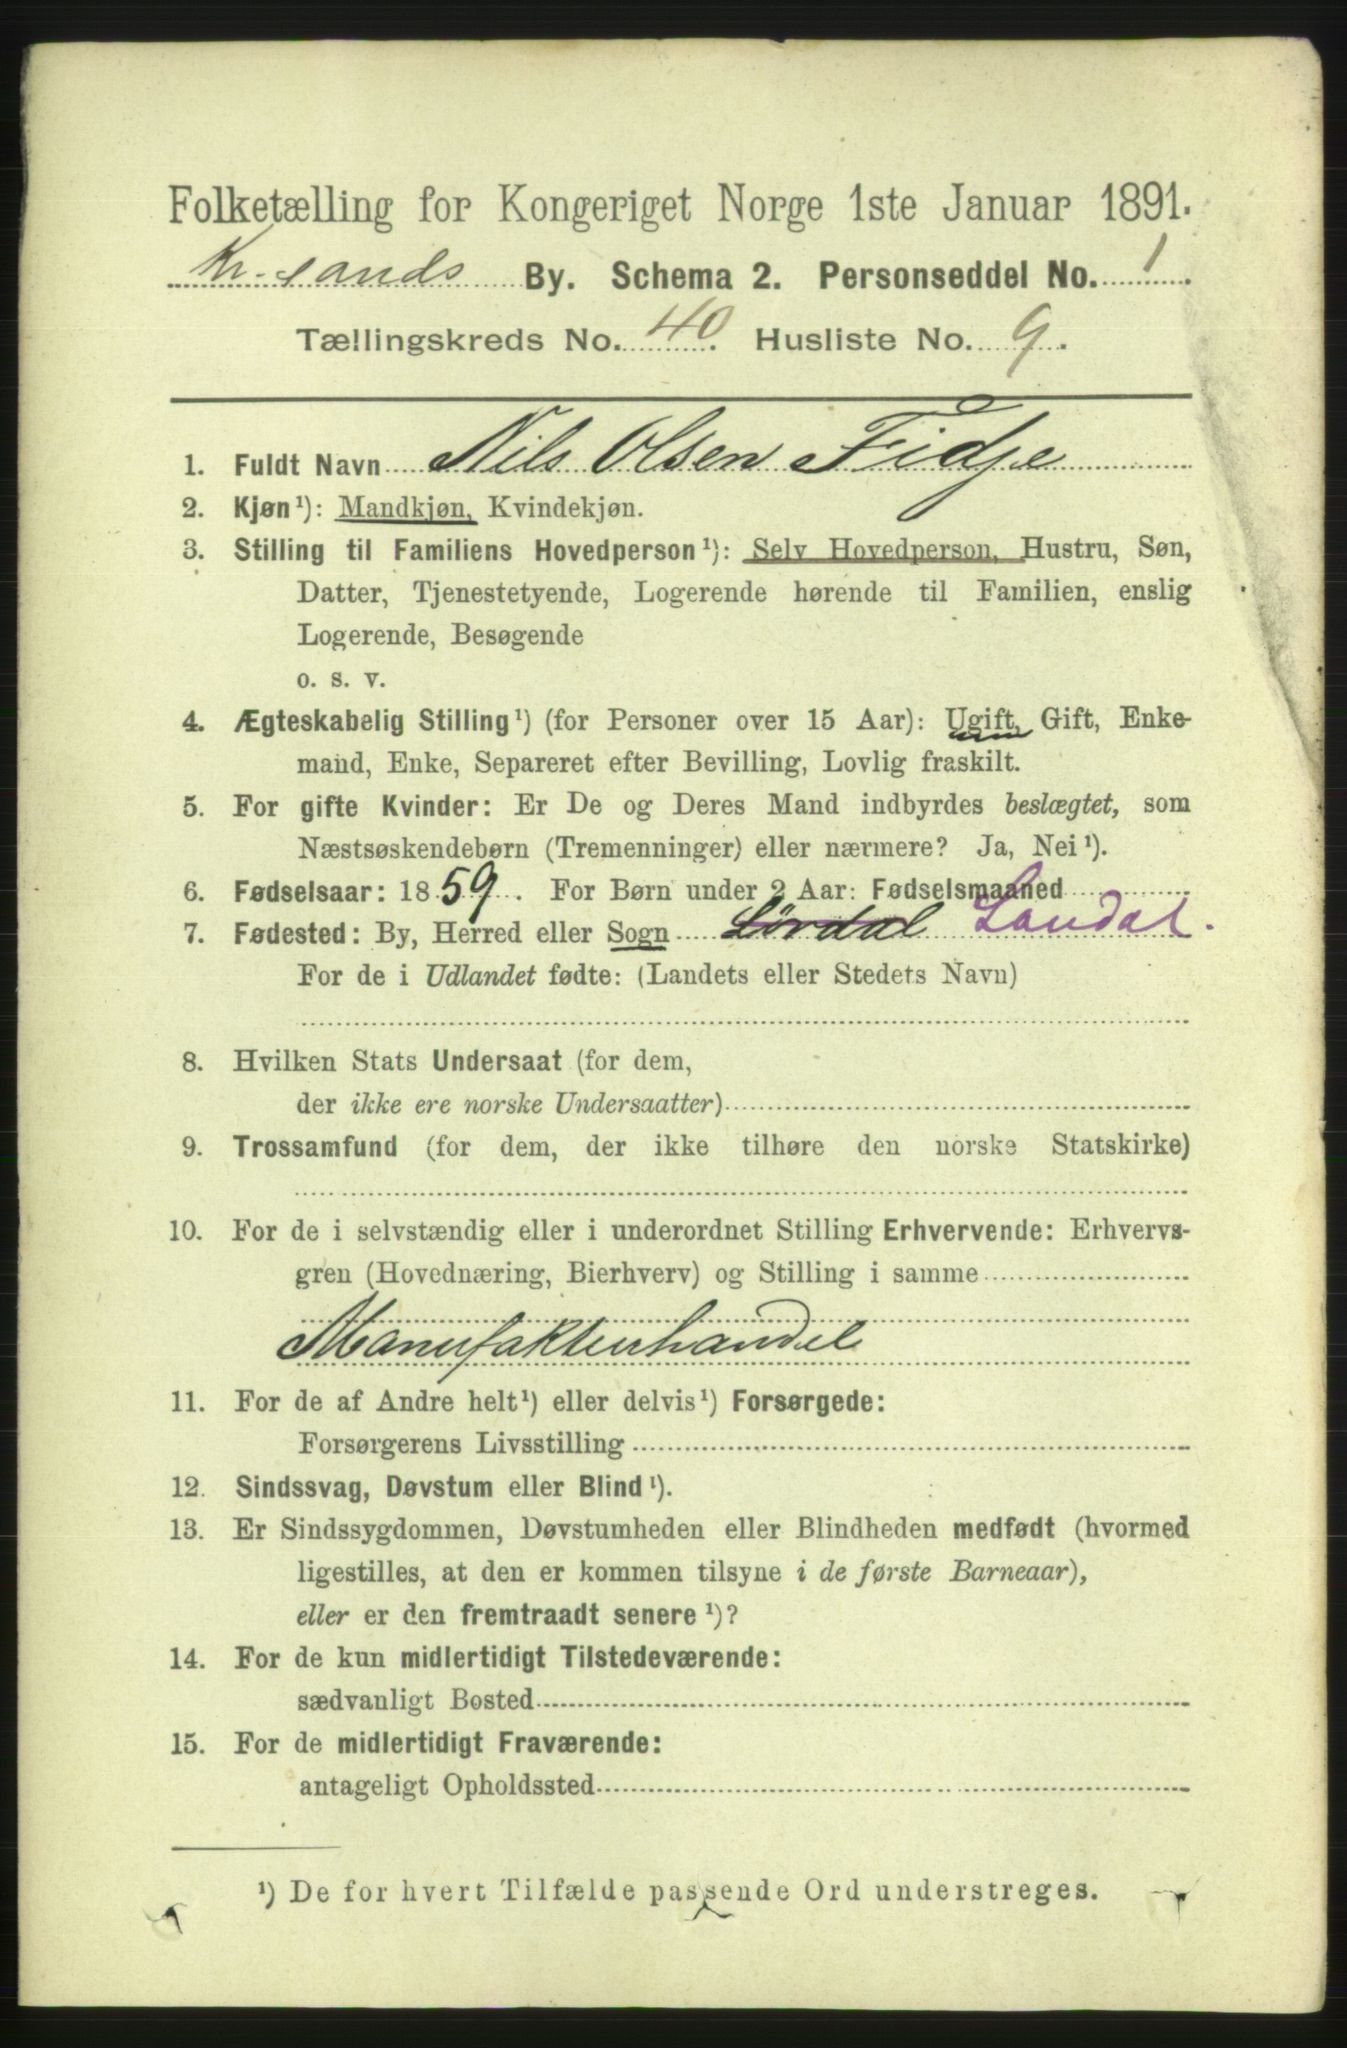 Folketælling for Kongeriget Norge 1ste Januar 1891.
Kr.sands By. Schema 2. Personseddel No. 1.
Tællingskreds No. 40. Husliste No. 9.
1. Fuldt Navn Nils Olsen Fidje
2. Kjøn¹): Mandkjøn, Kvindekjøn.
3. Stilling til Familiens Hovedperson¹): Selv Hovedperson, Hustru, Søn,
Datter, Tjenestetyende, Logerende hørende til Familien, enslig
Logerende, Besøgende
o. s. v.
4. Ægteskabelig Stilling¹) (for Personer over 15 Aar): Ugift, Gift, Enke-
mand, Enke, Separeret efter Bevilling, Lovlig fraskilt.
5. For gifte Kvinder: Er De og Deres Mand indbyrdes beslægtet, som
Næstsøskendebørn (Tremenninger) eller nærmere? Ja, Nei¹).
6. Fødselsaar: 1859. For Børn under 2 Aar: Fødselsmaaned
7. Fødested: By, Herred eller Sogn Lördal Laudal.
For de i Udlandet fødte: (Landets eller Stedets Navn)
8. Hvilken Stats Undersaat (for dem,
der ikke ere norske Undersaatter)
9. Trossamfund (for dem, der ikke tilhøre den norske Statskirke)
10. For de i selvstændig eller i underordnet Stilling Erhvervende: Erhvervs-
gren (Hovednæring, Bierhverv) og Stilling i samme
Manufakturhandel
11. For de af Andre helt¹) eller delvis¹) Forsørgede:
Forsørgerens Livsstilling
12. Sindssvag, Døvstum eller Blind¹).
13. Er Sindssygdommen, Døvstumheden eller Blindheden medfødt (hvormed
ligestilles, at den er kommen tilsyne i de første Barneaar),
eller er den fremtraadt senere¹)?
14. For de kun midlertidigt Tilstedeværende:
sædvanligt Bosted
15. For de midlertidigt Fraværende:
antageligt Opholdssted
¹) De for hvert Tilfælde passende Ord understreges.